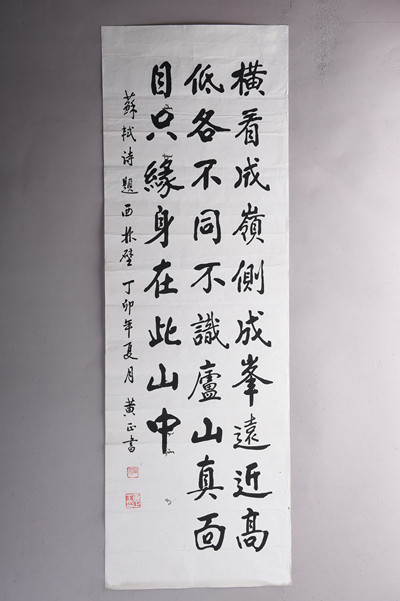 橫看成嶺側成峯遠近高
低各不同不識廬山真面
目只緣身在此山中
蘇軾诗題西林壁 丁卯年夏月 黄正書